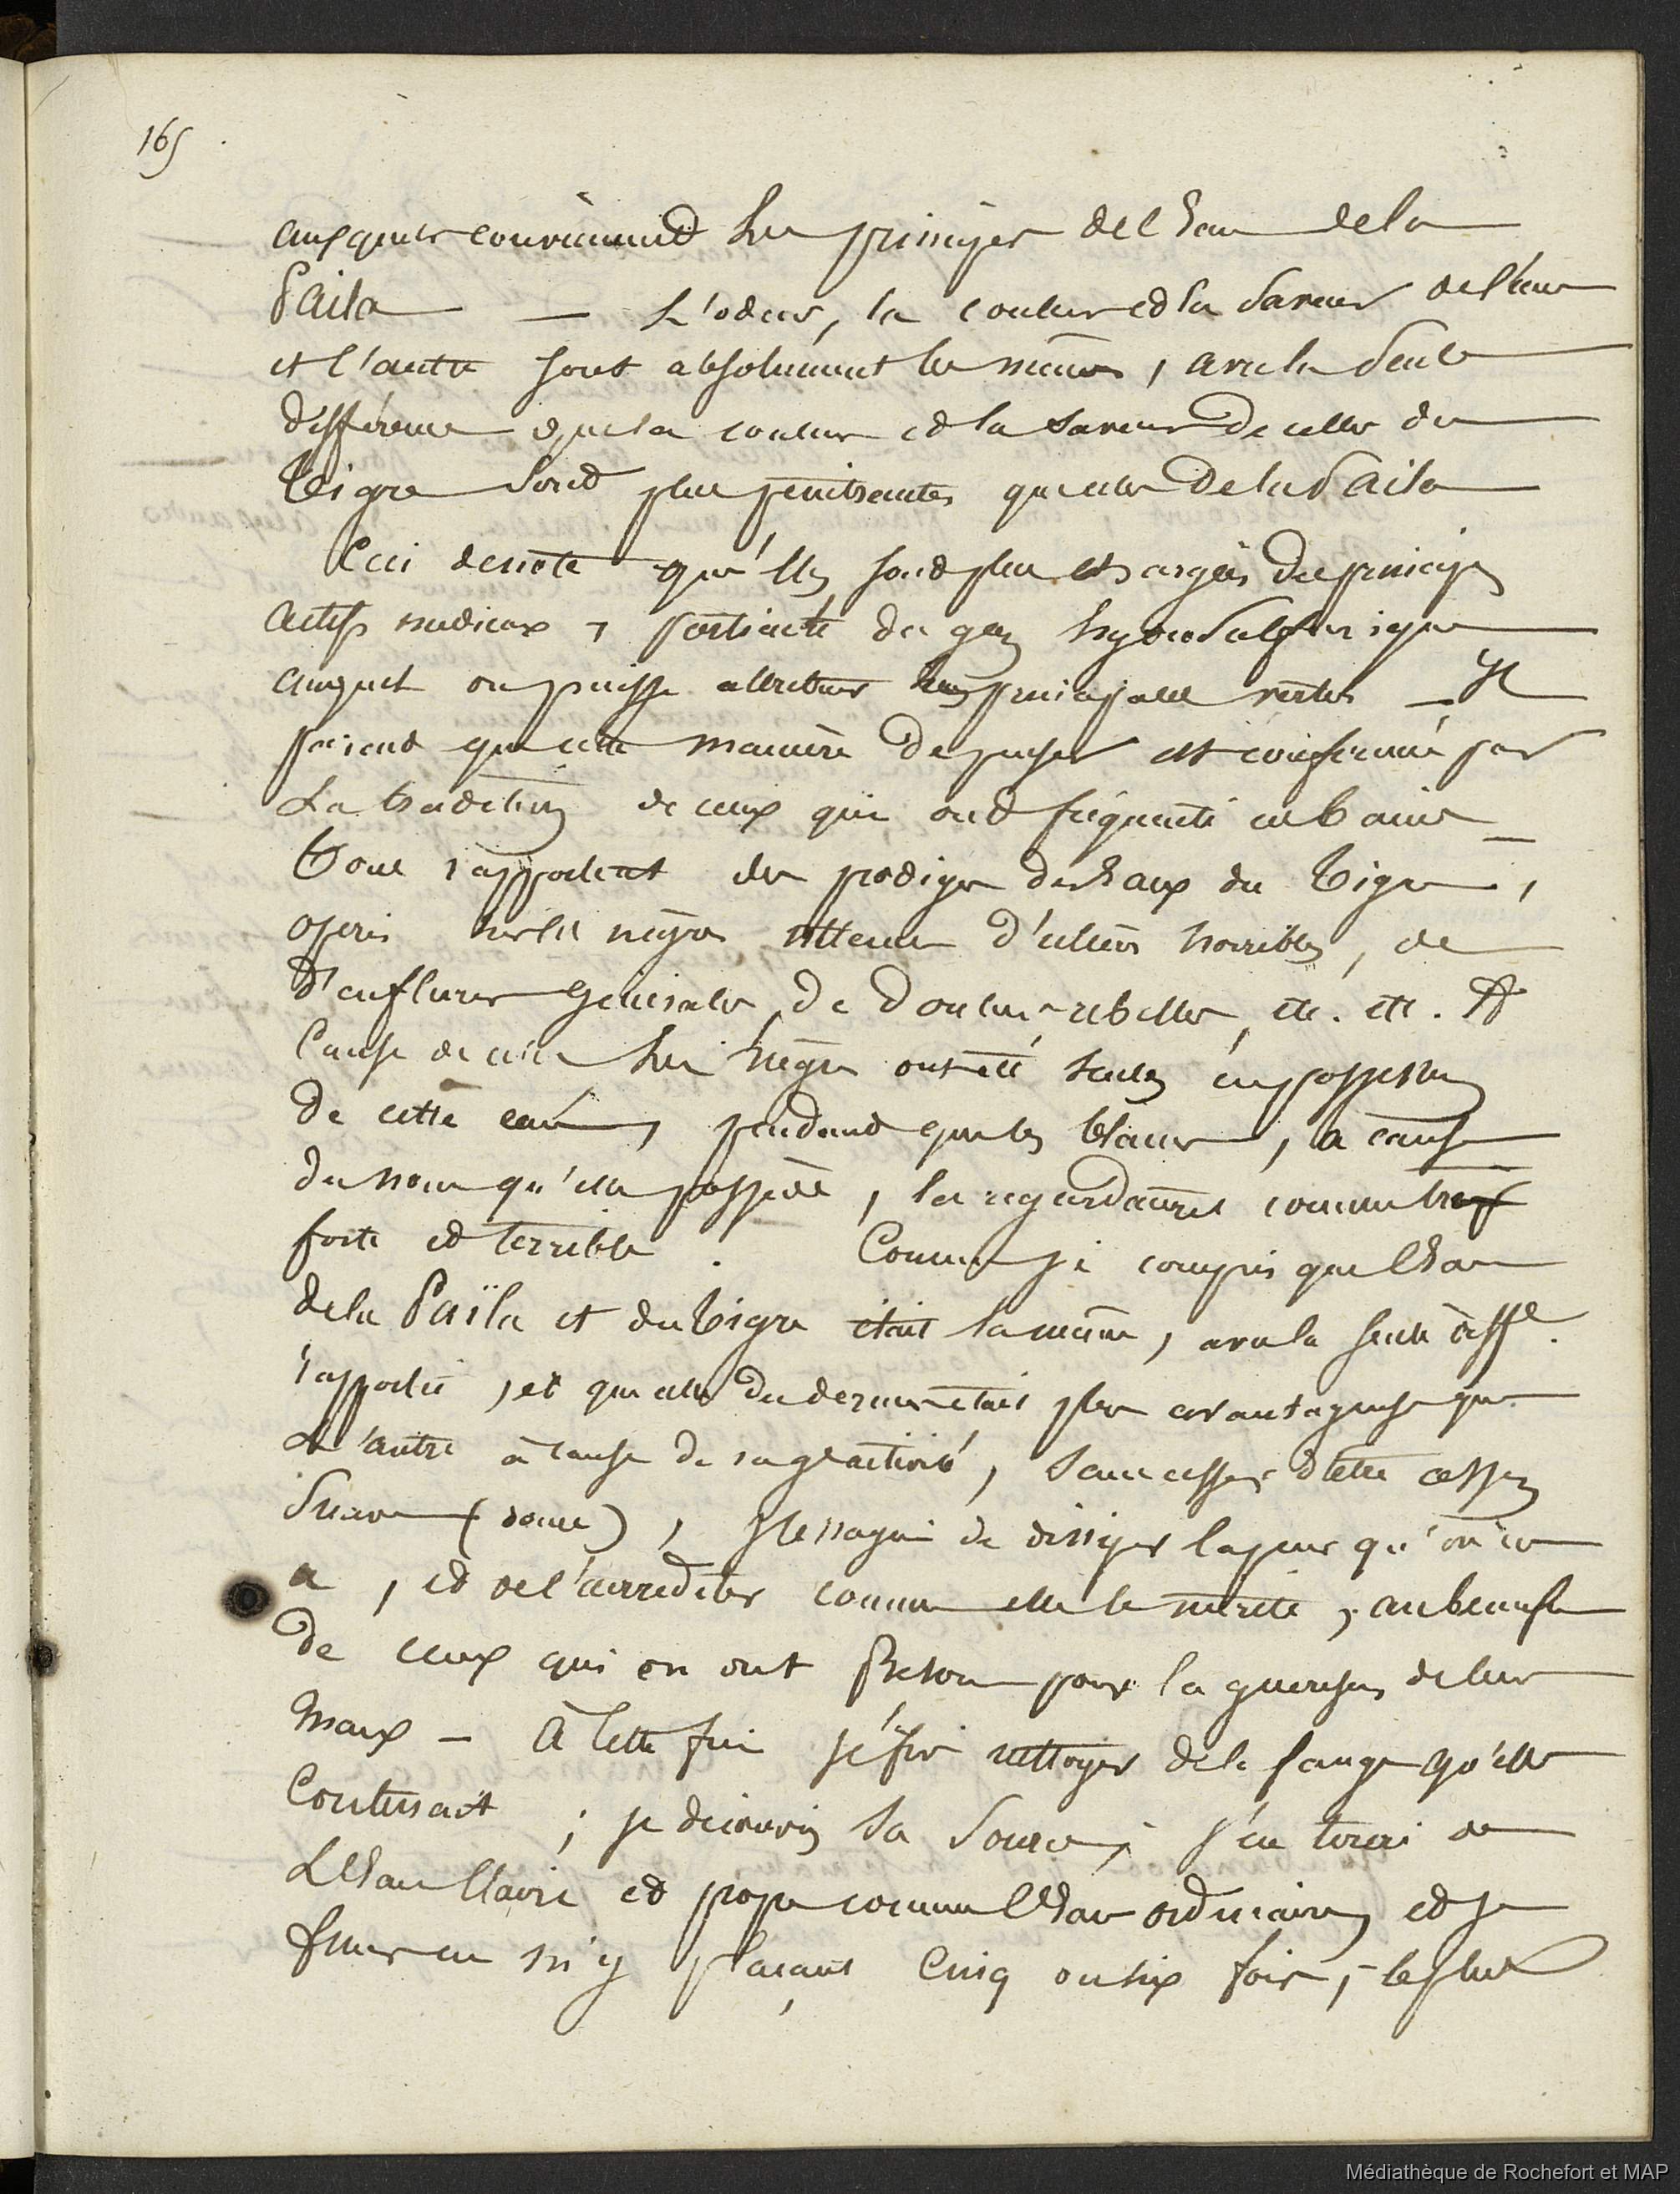 165
auxquels conviennent les principes de l'Eau de la
Païla — L'odeur, la couleur et la saveur de l'une
et l'autre sont absolument les mêmes, avec la seule
différence que la couleur et la saveur de celles du
Tigre sont plus pénétrantes que celles de la Païla
Ceci denote qu'elles sont plus chargées des principes
actifs medicaux, surtout du gaz hydrosulfurique
auquel on puisse attribuer leurs principales vertus — Il
parait que cette manière de penser est confirmée par
La tradition de ceux qui ont fréquenté ces bains —
Tous rapportent des prodiges des Eaux du Tigre,
operés sur les nègres atteints d'ulcères horribles, de
d'enflures générales, de douleurs rebelles, etc. etc. A
Cause de cela les nègres ont été seuls en possession
de cette eau, pendant que les blancs, à cause
du nom qu'elle possède, la regardaient comme trop
forte et terrible. Comme je compris que l'Eau
de la Païla et du Tigre était la même, avec la seule diff.ce
rapportée, et que celle du dernier était plus avantageuse que
L'autre à cause de sa gde activité, sans cesser d'être assez
Suave (douce), j'essayai de dissiper la peur qu'on en
a, et de l'accréditer comme elle le mérite, au benefice
de ceux qui en ont besoin pour la guerison de leurs
Maux — À cette fin je fis nettoyer de la fange qu'elle
Contenait; je découvris sa source; j'en tirai de
L'Eau Claire et propre comme l'Eau ordinaire, et je
fus en m'y plaçant cinq ou six fois, le plus